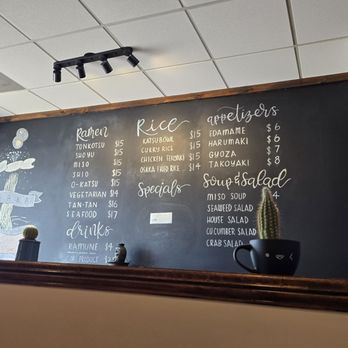 Ramen
TONKOTSU $15
SHOYU $15
MISO $15
SHIO $15
O-KATSU $15
VEGETARIAN $14
TAN-TAN $16
SEAFOOD $17
drinks
RAMUNE $4
Rice
KATSU BOWL $15
CURRY RICE $15
CHICKEN TERIYAKI $15
OSAKA FRIED RICE $14
Specials
appetizers
EDAMAME $6
HARUMAKI $6
GYOZA $7
TAKOYAKI $8
Soup & Salad
MISO SOUP
SEAWEED SALAD
HOUSE SALAD
CUCUMBER SALAD
CRAB SALAD